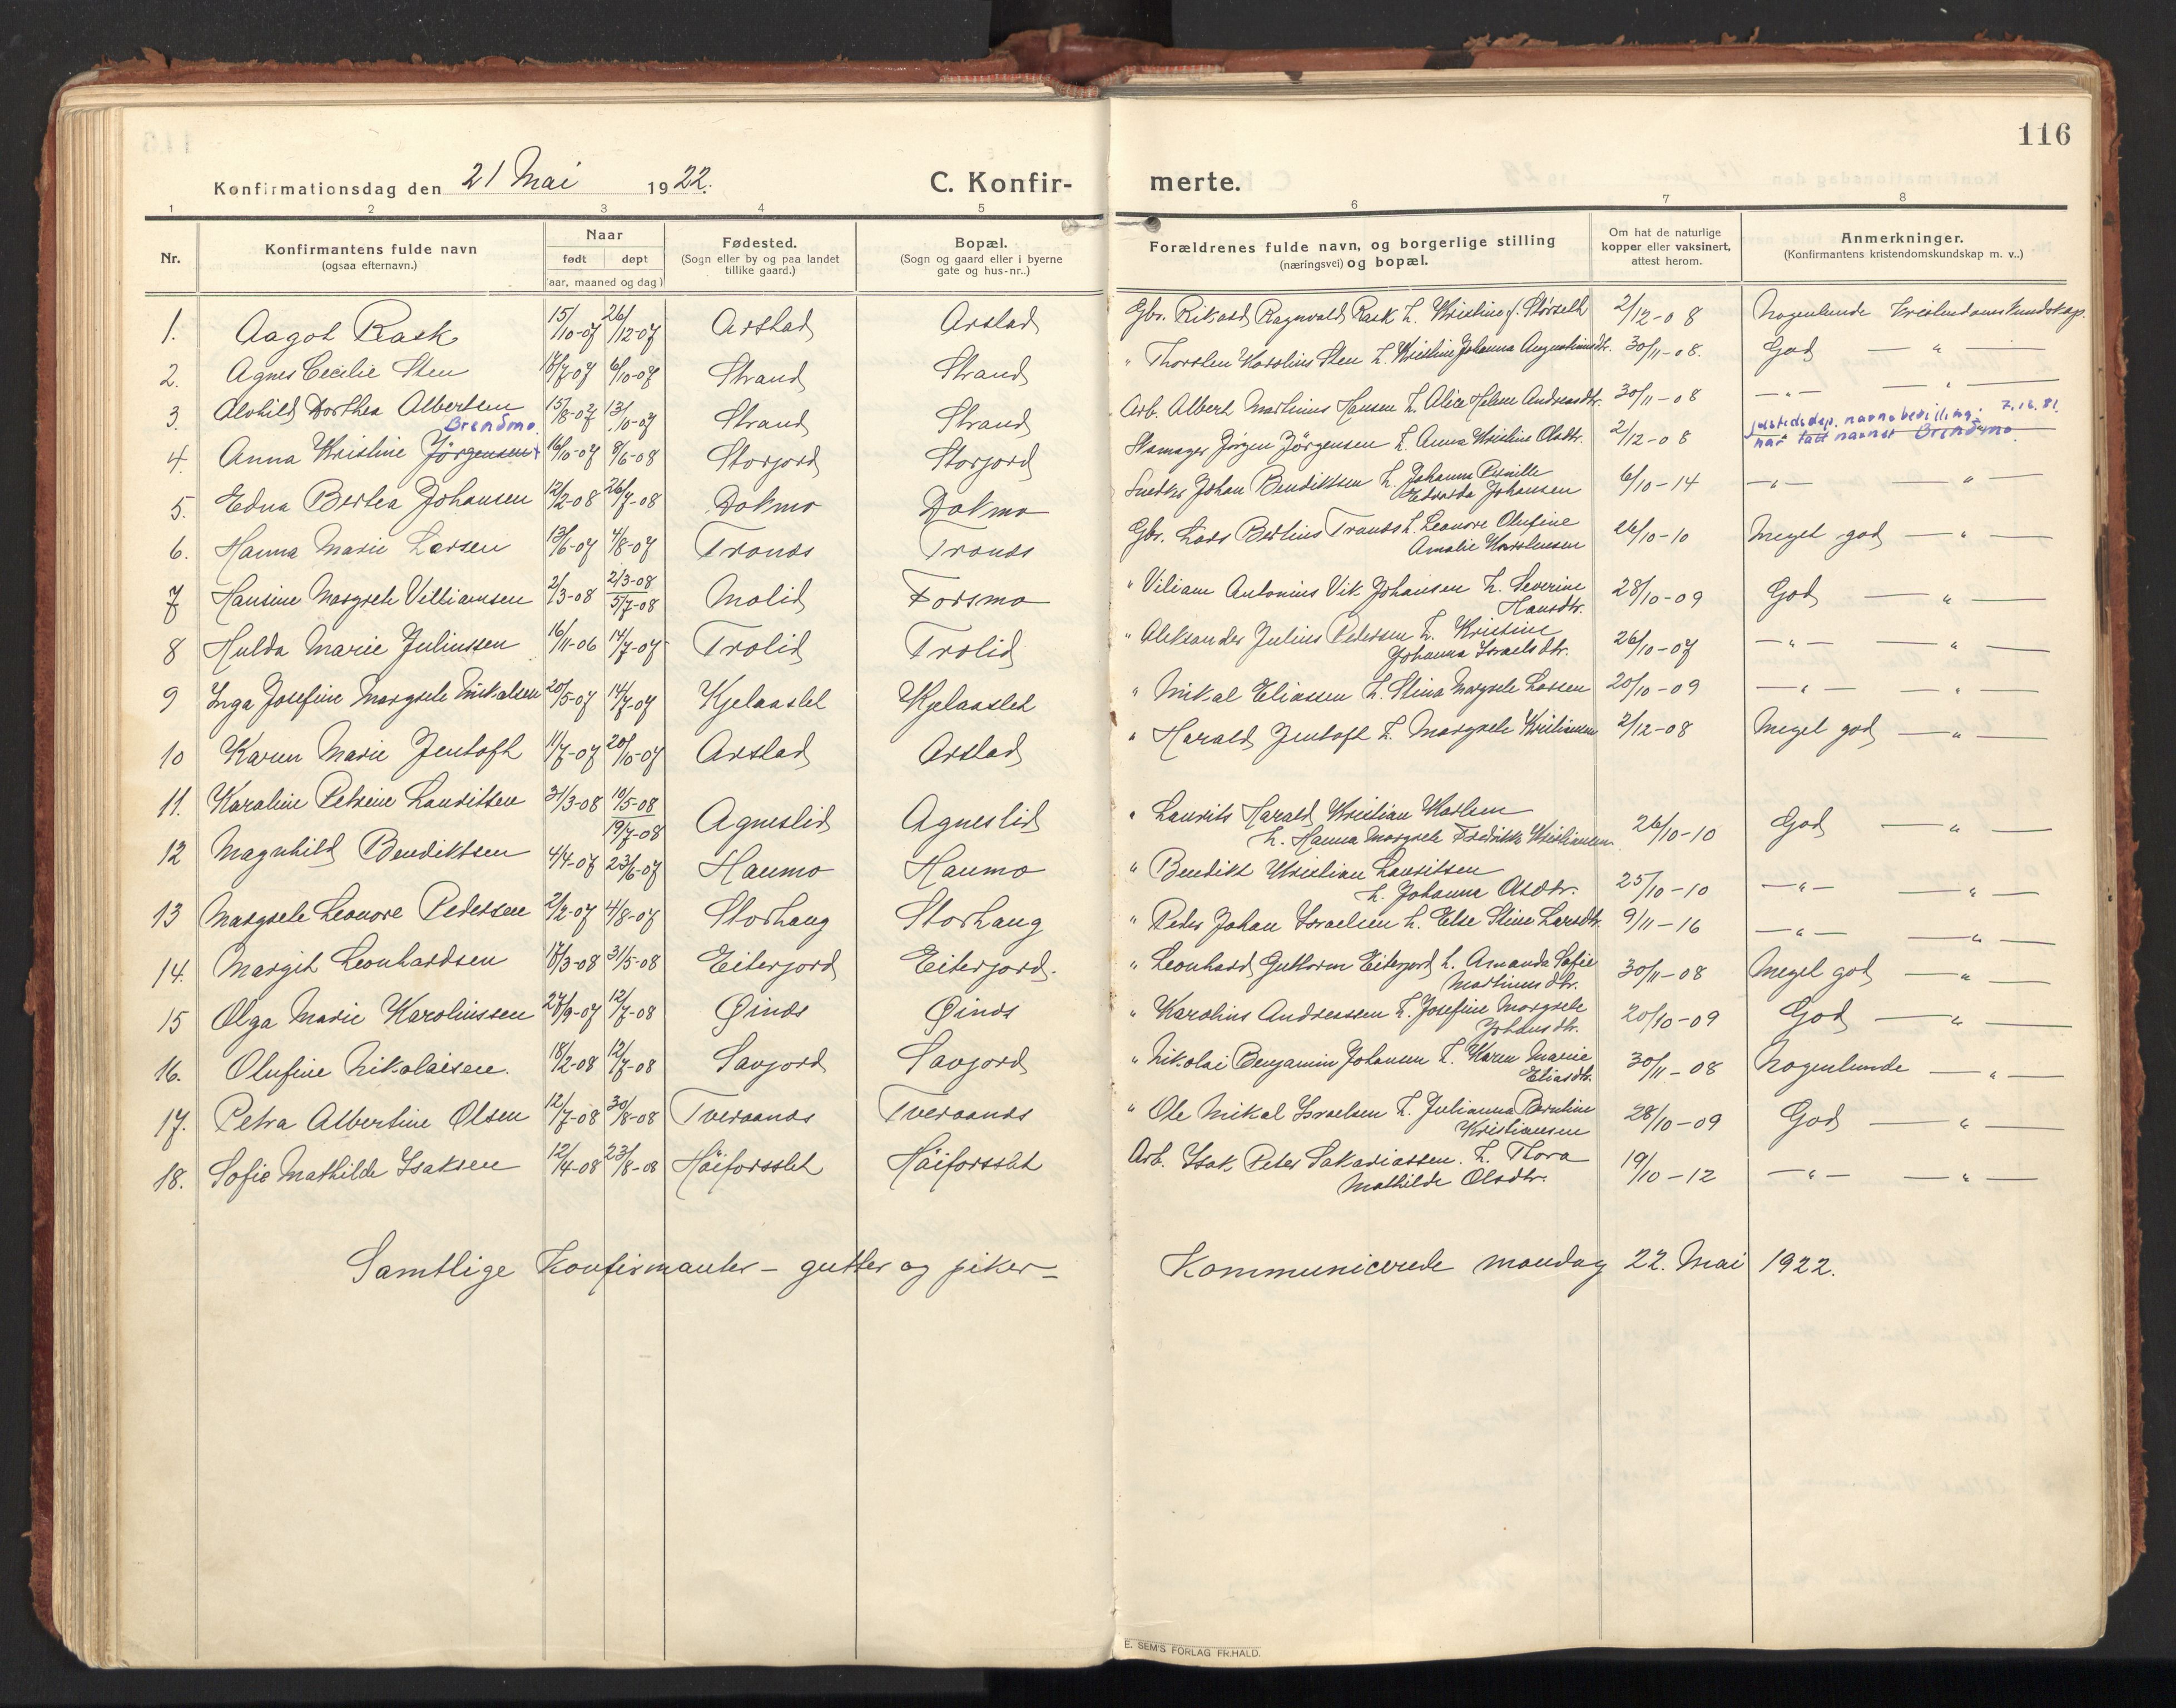 116
Konfirmationsdag den 21 Mai 1922. C. Konfir- merte.
1 2 3 4 5 6 7 8
Nr. Konfirmantens fulde navn (ogsaa efternavn.) Naar født døpt (aar, maaned og dag) Fødested. (Sogn eller by og paa landet tillike gaard.) Bopæl. (Sogn og gaard eller i byerne gate og hus-nr..) Forældrenes fulde navn, og borgerlige stilling (næringsvei) og bopæl. Om hat de naturlige kopper eller vaksinert, attest herom. Anmerkninger. (Konfirmantens kristendomskundskap m. v..)
1. Aagot Rask 15/10-07 26/12-07 Arstad Arstad Gbr. Rikard Ragnvald Rask h. Kristine f. Störseth 2/12-08 Nogenlunde Kristendomskundskap.
2. Agnes Cecilie Sten 17/7-07 6/10-07 Strand Strand " Thorsten Karolius Sten h. Kristine Johanna Augustinusdtr. 30/11-08. God — " —
3. Alvhild Dorthea Albertsen 15/8-07 13/10-07 Strand Strand Arb. Albert Martinus Hansen h. Alice Helene Andreasdtr. 30/11-08 — " — — " —
Brendmo justisdep. navnebevilling. 7.12.81.
4. Anna Kristine Jörgensen 16/10-07 8/6-08 Storjord Storjord Jörgen Jörgensen h. Anna Kristine Olsdtr. 2/12-08 har tatt navnet Brendmo
5. Edna Bertea Johansen 12/2-08 26/7-08 Dokmo Dokmo Snedker Johan Bendiktsen h. Johanna Pernille Edvarda Johansen 6/10-14 — " — " —
6. Hanna Marie Larsen 13/6-07 4/8-07 Trones Trones Gbr. Lars Bertius Trones h. Leonore Olufine Amalie Karolinesen 26/10-10 Meget god — " —
7 Hansine Margrete Villiamsen 2/3-08 2/3-08 5/7-08 Molid Forsmo " Viliam Antonius Vik Johansen h. Severine Hansdtr. 28/10-09 God — " —
8 Hulda Marie Juliussen 16/11-06 14/7-07 Trolid Trolid " Aleksander Julius Petersen h. Kristine Johanna Israelsdtr. 26/10-07 — " — — " —
9 Inga Josefine Margrete Mikalsen 20/5-07 14/7-07 Kjelaaslet Kjelaaslet " Mikal Eliassen h. Stina Margrete Larsen 20/10-09 — " — — " —
10 Karen Marie Jentoft 11/7-07 20/10-07 Arstad Arstad " Harald Jentoft h. Margrete Kristiansen 2/12-08 Meget god — " —
11. Karoline Petrine Lauritsen 31/3-08 10/5-08 19/7-08 Agneslid Agneslid " Laurits Harald Kristian Karlsen h. Hanna Margrete Fredrikke Kristiansen 26/10-10 God — " —
12 Magnhild Bendiktsen 4/4-07 23/6-07 Haumo Haumo " Bendikt Kristian Lauritsen h. Johanna Olsdtr. 25/10-10 — " — — " —
13 Margrete Leonore Pedersen 2/2-07 4/8-07 Storhaug Storhaug " Peder Johan Israelsen h. Else Stine Larsdtr. 9/11-16 — " — — " —
14. Margit Leonhardsen 17/3-08 31/5-08 Eiterjord Eiterjord. " Leonhard Guttorm Eiterjord h. Amanda Sofie Martinusdtr. 30/11-08 Meget god — " —
15 Olga Marie Karoliussen 27/9-07 12/7-08 Øines Øines " Karolius Andreassen h. Josefine Margrete Johansdtr. 20/10-09 God — " —
16. Olufine Nikolaisen. 18/2-08 12/7-08 Savjord Savjord " Nikolai Benjamin Johansen h. Karen Marie Eliasdtr. 30/11-08 Nogenlunde — " —
17. Petra Albertine Olsen 12/7-08 30/8-08 Tveraanes Tveraanes " Ole Mikal Israelsen h. Julianna Berntine Kristiansen 28/10-09 God — " —
18. Sofie Mathilde Isaksen 12/4-08 23/8-08 Höiforsslet Höiforsslet Arb. Isak Peter Sakariassen. h. Thora Mathilde Olsdtr. 19/10-12 — " — — " —
Samtlige Konfirmanter – gutter og piker – Kommunicerede mandag 22. Mai 1922.
E. SEM'S FORLAG FR.HALD.